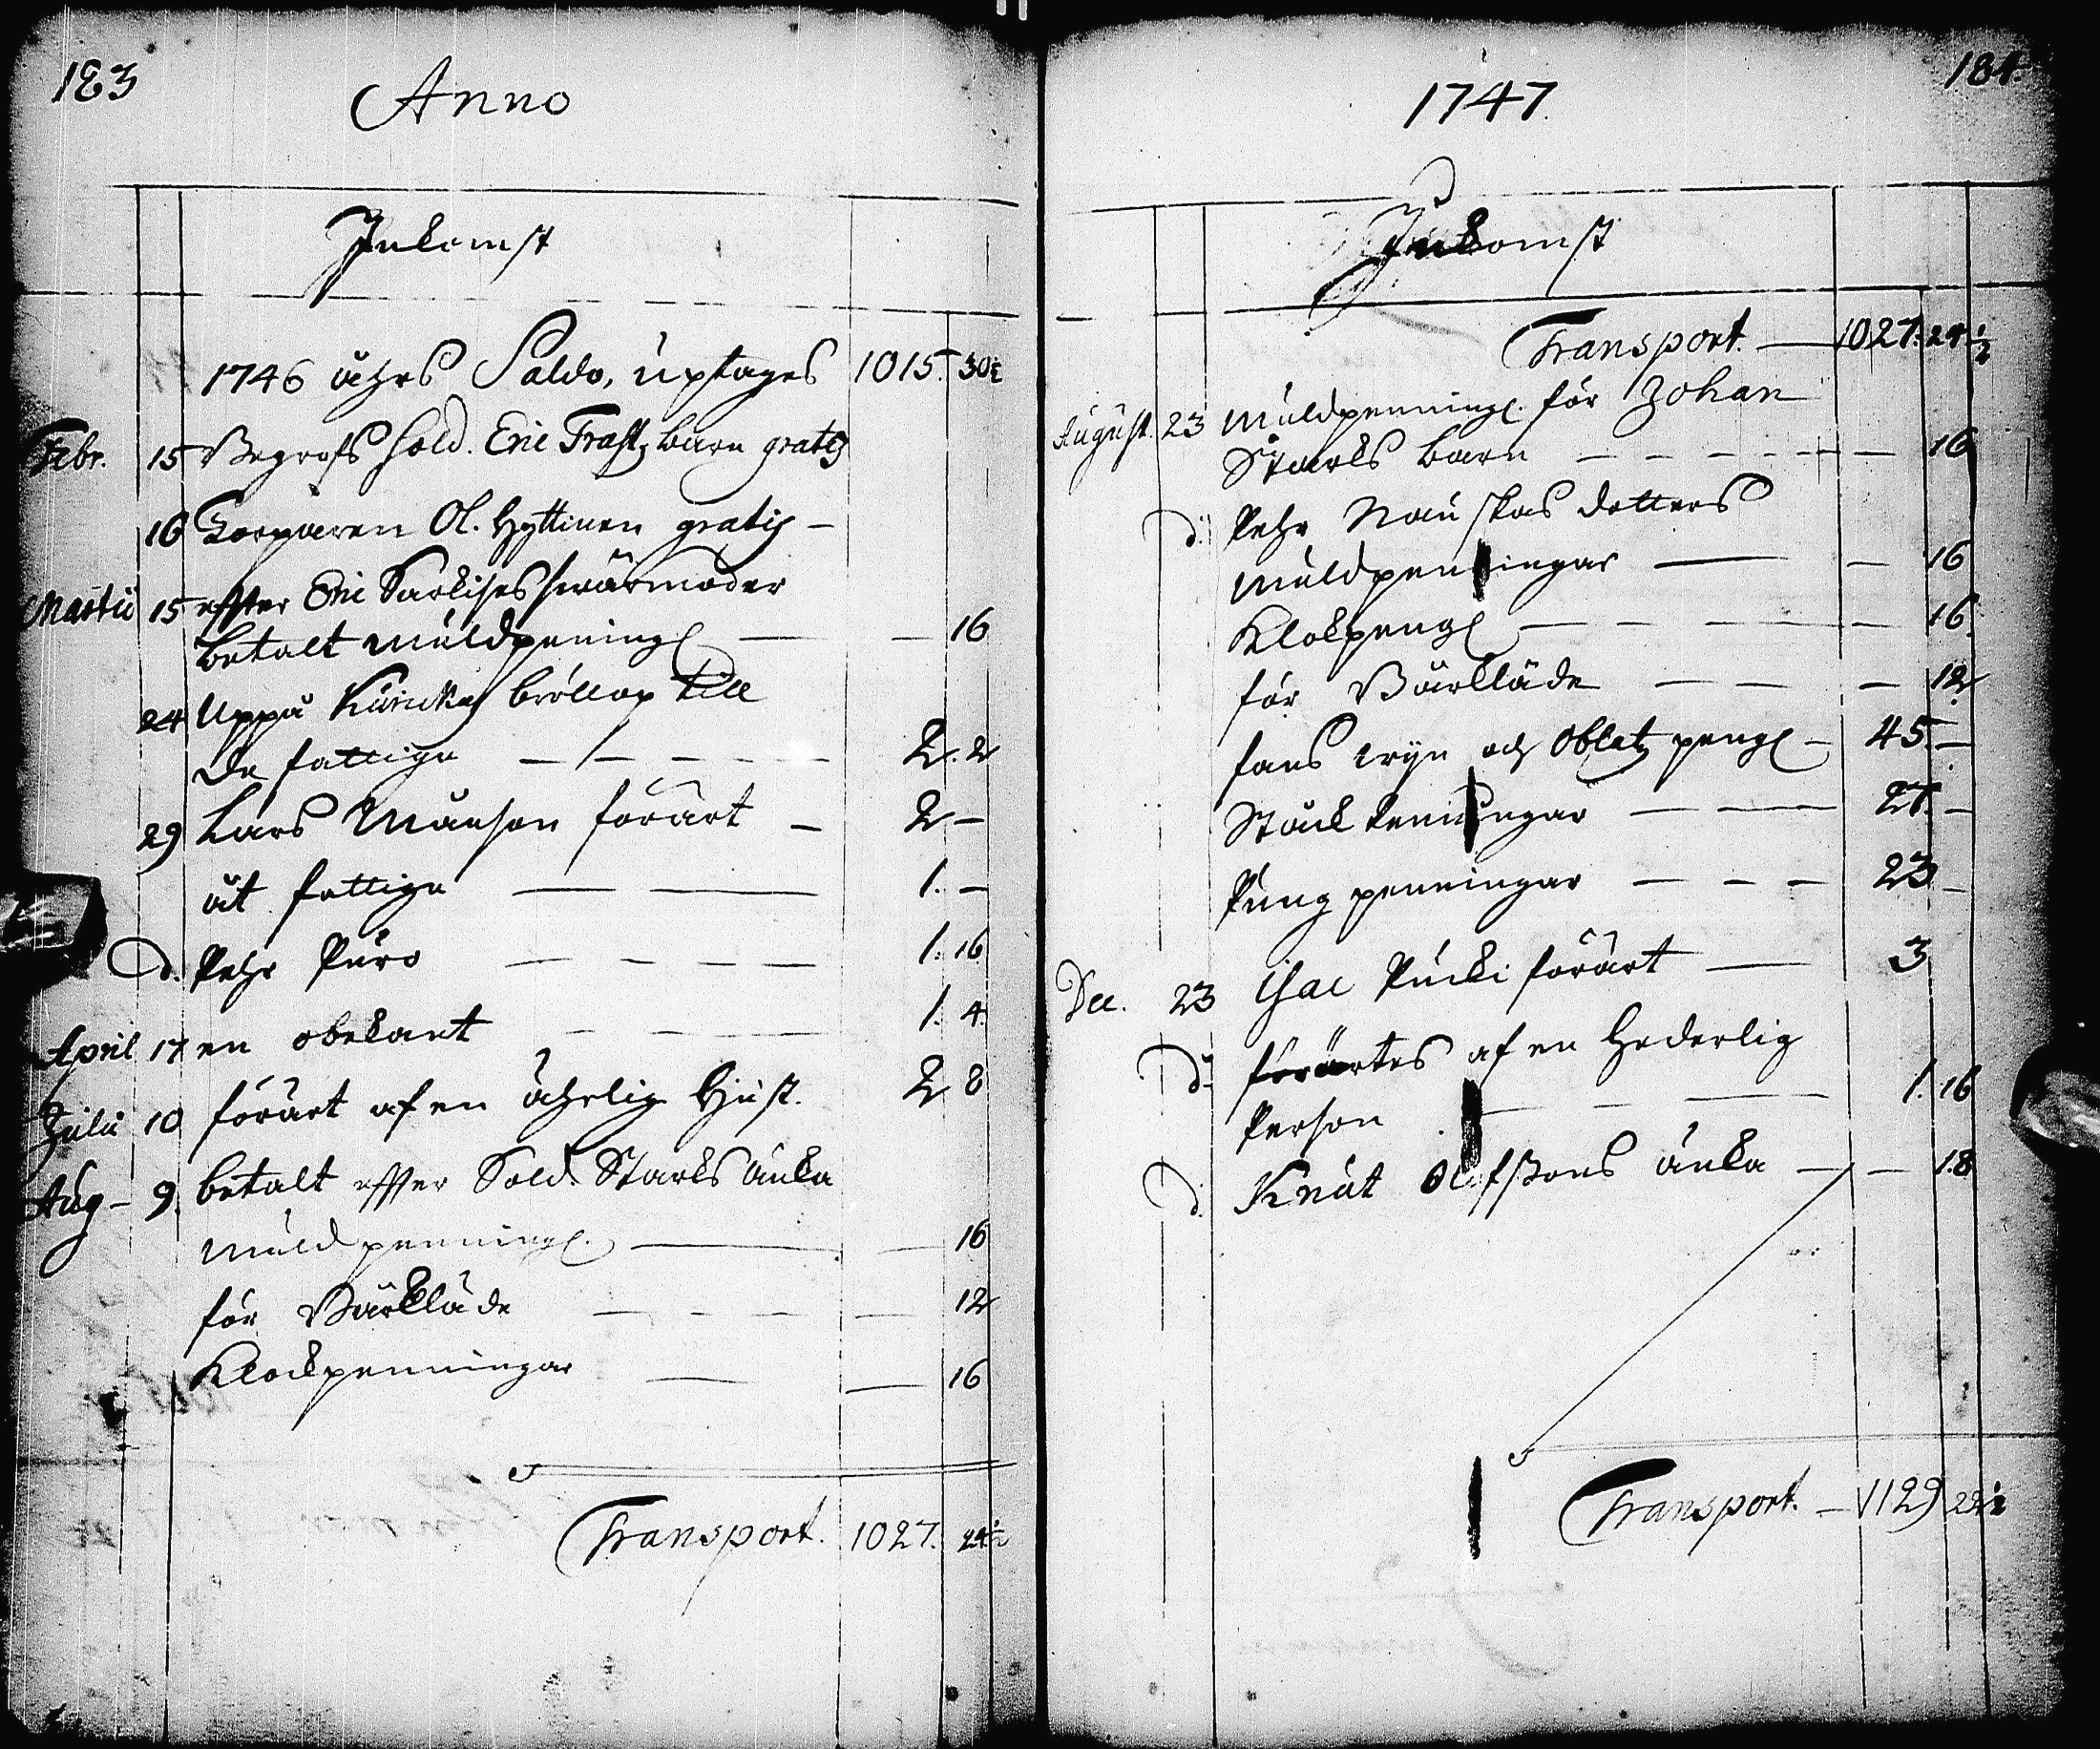 183
Anno
Inkomst
1746 åhrs Saldo, uptages 1015. 30½
Febr. 15 Begrofs Sold. Eric Trast barn gratis
16 Torparen Ol. Hyttinen gratis –
Martii 15 effter Eric Sarkises swärmoder
betalt muldpening – 16
24 Uppå bröllop till
De fattiga – 2. 2
29 Lars Månson förärt – 2 –
åt fattiga – 1. –
d. Pehr Puro – 1. 16
April 17 en obekant – 1. 4.
Julii 10 förärt af en ährlig Hust. 2 8
Aug – 9. betalt effter Sold. Starks änka
muldpenning. – 16
för Bårkläde – 12
Klockpenningar – 16
Transport. 1027. 24½
184.
1747.
Inkomst
Transport. – 1027. 24½
August. 23 Muldpenning. för Johan
Starks barn – 16
d. Pehr dotters
muldpenningar – 16
Klokpeng – 16.
för Bårkläde – 12
fans wijn och Oblat peng – 45. –
Stock peningar – 27. –
Pung penningar – 23 –
Dec. 23 Isac Pucki förärt – 3
d. förärtes af en Hederlig
Person – 1. 16
d. Knut Olofssons änka – 18
Transport. – 1129 22½